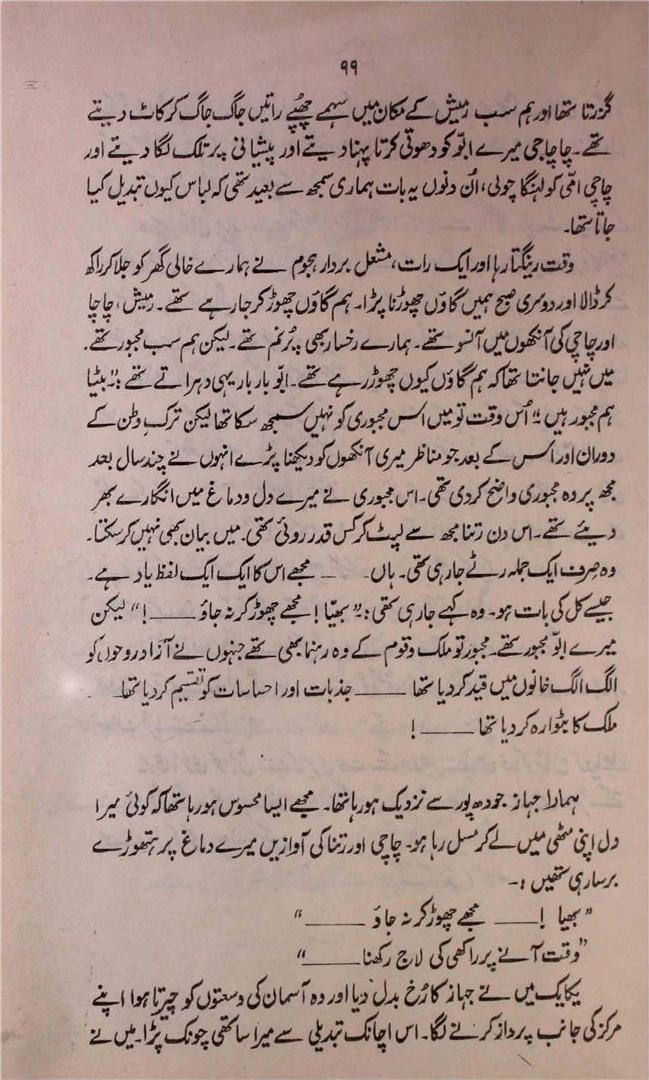 ۹۹
گزرتا تھا اور ہم سب رمیش کے مکان میں سہمے چھپے راتیں جاگ جاگ کر کاٹ دیتے
تھے۔ چاچا جی میرے ابّو کو دھوتی کرتا پہنا دیتے اور پیشانی پر تلک لگا دیتے اور
چاچی امّی کو لہنگا چولی، اُن دنوں یہ بات ہماری سمجھ سے بعید تھی کہ لباس کیوں تبدیل کیا
جاتا تھا۔
وقت رینگتا رہا اور ایک رات، مشعل بردار ہجوم نے ہمارے خالی گھر کو جلا کر راکھ
کر ڈالا اور دوسری صبح ہمیں گاؤں چھوڑنا پڑا۔ ہم گاؤں چھوڑ کر جا رہے تھے۔ رمیش، چاچا
اور چاچی کی آنکھوں میں آنسو تھے۔ ہمارے رخسار بھی پُر نم تھے۔ لیکن ہم سب مجبور تھے۔
میں نہیں جانتا تھا کہ ہم گاؤں کیوں چھوڑ رہے تھے۔ ابّو بار بار یہی دہراتے تھے :۔ "بیٹا
ہم مجبور ہیں" اُس وقت تو میں اس مجبوری کو نہیں سمجھ سکا تھا لیکن ترکِ وطن کے
دوران اور اُس کے بعد جو مناظر میری آنکھوں کو دیکھنا پڑے انہوں نے چند سال بعد
مجھ پر وہ مجبوری واضح کر دی تھی۔ اس مجبوری نے میرے دل و دماغ میں انگارے بھر
دیئے تھے۔ اس دن رتنا مجھ سے لپٹ کر کس قدر روئی تھی۔ میں بیان بھی نہیں کر سکتا۔
وہ صرف ایک جملہ رٹے جا رہی تھی۔ ہاں ــــ مجھے اس کا ایک ایک لفظ یاد ہے۔
جیسے کل کی بات ہو۔ وہ کہے جا رہی تھی :۔ "بھیّا! مجھے چھوڑ کر نہ جاؤ ــــ !" لیکن
میرے ابّو مجبور تھے۔ مجبور تو ملک و قوم کے وہ رہنما بھی تھے جنہوں نے آزاد روحوں کو
الگ الگ خانوں میں قید کر دیا تھا ــــ جذبات اور احساسات کو تقسیم کر دیا تھا
ملک کا بٹوارہ کر دیا تھا ــــ !
ہمارا جہاز جودھ پور سے نزدیک ہو رہا تھا۔ مجھے ایسا محسوس ہو رہا تھا کہ کوئی میرا
دل اپنی مٹھی میں لے کر مسل رہا ہو۔ چاچی اور رتنا کی آوازیں میرے دماغ پر ہتھوڑے
برسا رہی تھیں :۔
"بھیا! ــــ مجھے چھوڑ کر نہ جاؤ ــــ"
"وقت آنے پر راکھی کی لاج رکھنا ــــ"
یکایک میں نے جہاز کا رُخ بدل دیا اور وہ آسمان کی وسعتوں کو چیرتا ہوا اپنے
مرکز کی جانب پرواز کرنے لگا۔ اس اچانک تبدیلی سے میرا ساتھی چونک پڑا۔ میں نے